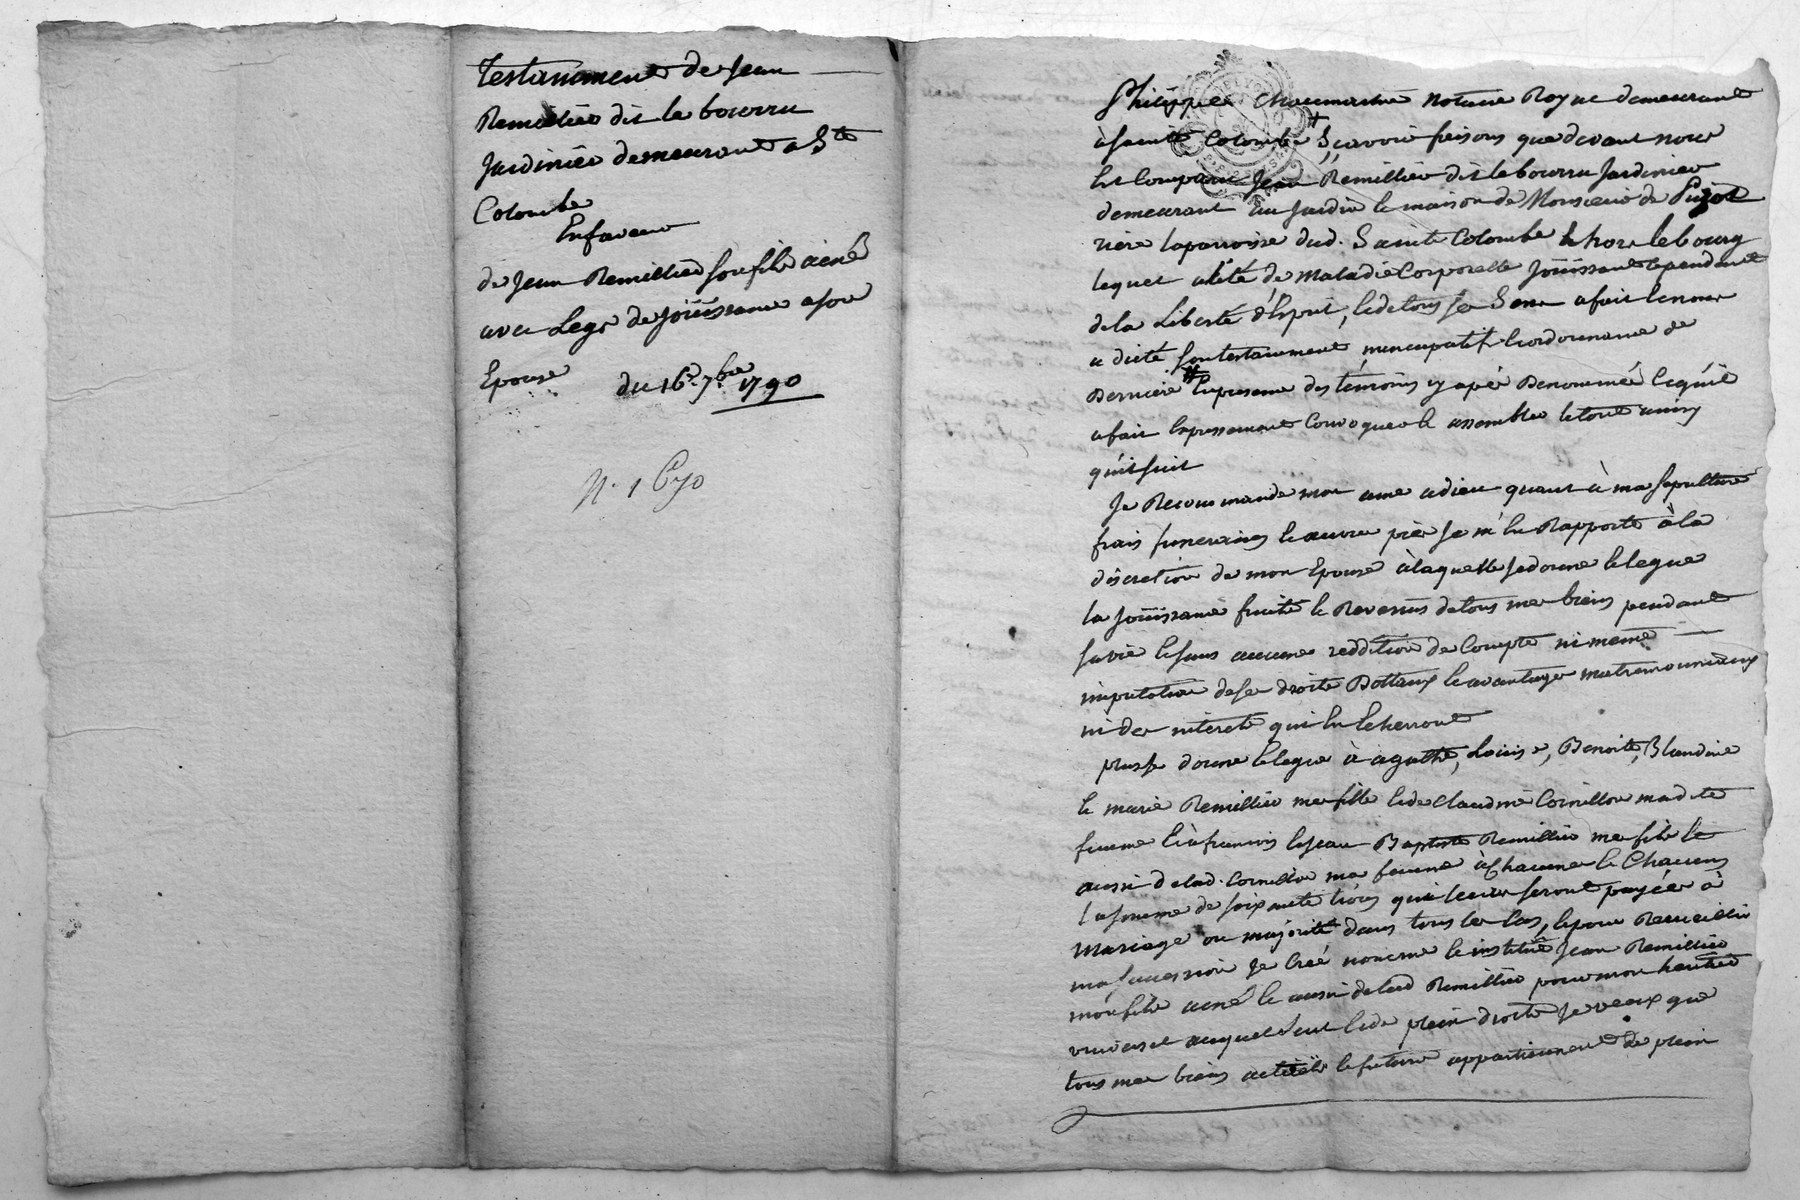 Testamment de Jean
Remillier dit le bourru
Jardinier demeurant a Ste
Colombe
En faveur
de Jean Remillier son fils ainé
avec Legs de joüissance a son
Epouse du 16e. 7bre 1790
N. 1
Philippe Chaumartin notaire Royal demeurant
à sainte Colombe Scavoir faisons que devant nous
Est Comparu Jean Remillier dit le bourru Jardinier
demeurant au Jardin & maison de Monsieur de
riere la parroisse dud. Sainte Colombe & hors le bourg
lequel alité de maladie Corporelle Joüissant cependant
de la Liberté d'Esprit, & de tous ses Sens a fait & nous
a dicté son testamment nuncupatif & ordonnance de
derniere En presence des témoins cy apés denommés & qu'il
a fait Expressement Convoquer & assembler le tout ainsy
qu'il suit
Je Recommande mon ame a dieu quant à ma sepulture
frais funeraires & œuvres pies Je m'En Rapporte à la
discretion de mon Epouse à laquelle Je donne & legue
la Joüissance fruits & Revenus de tous mes biens pendant
sa vie & sans aucune reddition de Compte ni meme
imputation de ses droits Dottaux & avantages matrimonniaux
ni des interets qui En Echerront
plus Je donne & legue à agathe, Louise, Benoite, Blandine
& marie Remillier mes filles & de Claudine Cornillon madite
femme & à francois & Jean Baptiste Remillier mes fils &
aussi de lad. Cornillon ma femme à Chacune & Chacuns
la somme de soixante livres qui leur seront payées à
Mariage ou majorité dans tous les Cas, & pour Recueillir
ma succession Je Créé nomme & institue Jean Remillier
mon fils ainé & aussi de lad Remillier pour mon heritier
universel auquel seul & de plein droits Je veux que
tous mes biens actüels & futurs appartiennent de plein